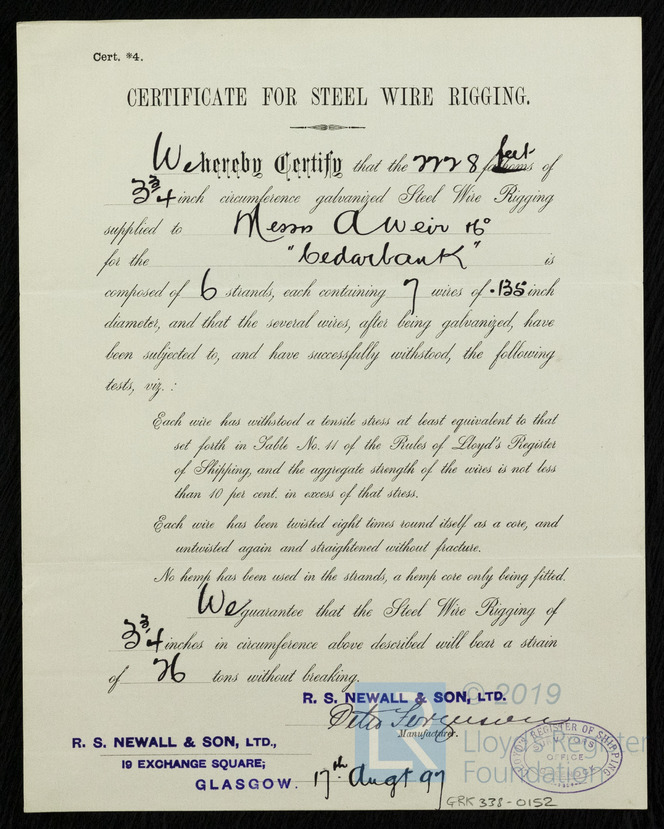 Cert. *4.
CERTIFICATE FOR STEEL WIRE RIGGING.
We hereby Certify that the 2228 fathoms feet of
3 3/4 inch circumference galvanized Steel Wire Rigging
supplied to Messrs A Weir & Co
for the "Cedarbank" is
composed of 6 strands, each containing 7 wires of .135 inch
diameter, and that the several wires, after being galvanized, have
been subjected to, and have successfully withstood, the following
tests, viz.:
Each wire has withstood a tensile stress at least equivalent to that
set forth in Table No. 11 of the Rules of Lloyd's Register
of Shipping, and the aggregate strength of the wires is not less
than 10 per cent. in excess of that stress.
Each wire has been twisted eight times round itself as a core, and
untwisted again and straightened without fracture.
No hemp has been used in the strands, a hemp core only being fitted.
We guarantee that the Steel Wire Rigging of
3 3/4 inches in circumference above described will bear a strain
of 26 tons without breaking.
R. S. NEWALL & SON, LTD.
Peter Ferguson
Manufacturer.
R. S. NEWALL & SON, LTD.,
19 EXCHANGE SQUARE;
GLASGOW.
17th Augt 97
LLOYD'S REGISTER OF SHIPPING
SURVEYORS
OFFICE
GRK 338-0152
© 2019
Lloyd's Register
Foundation
LR